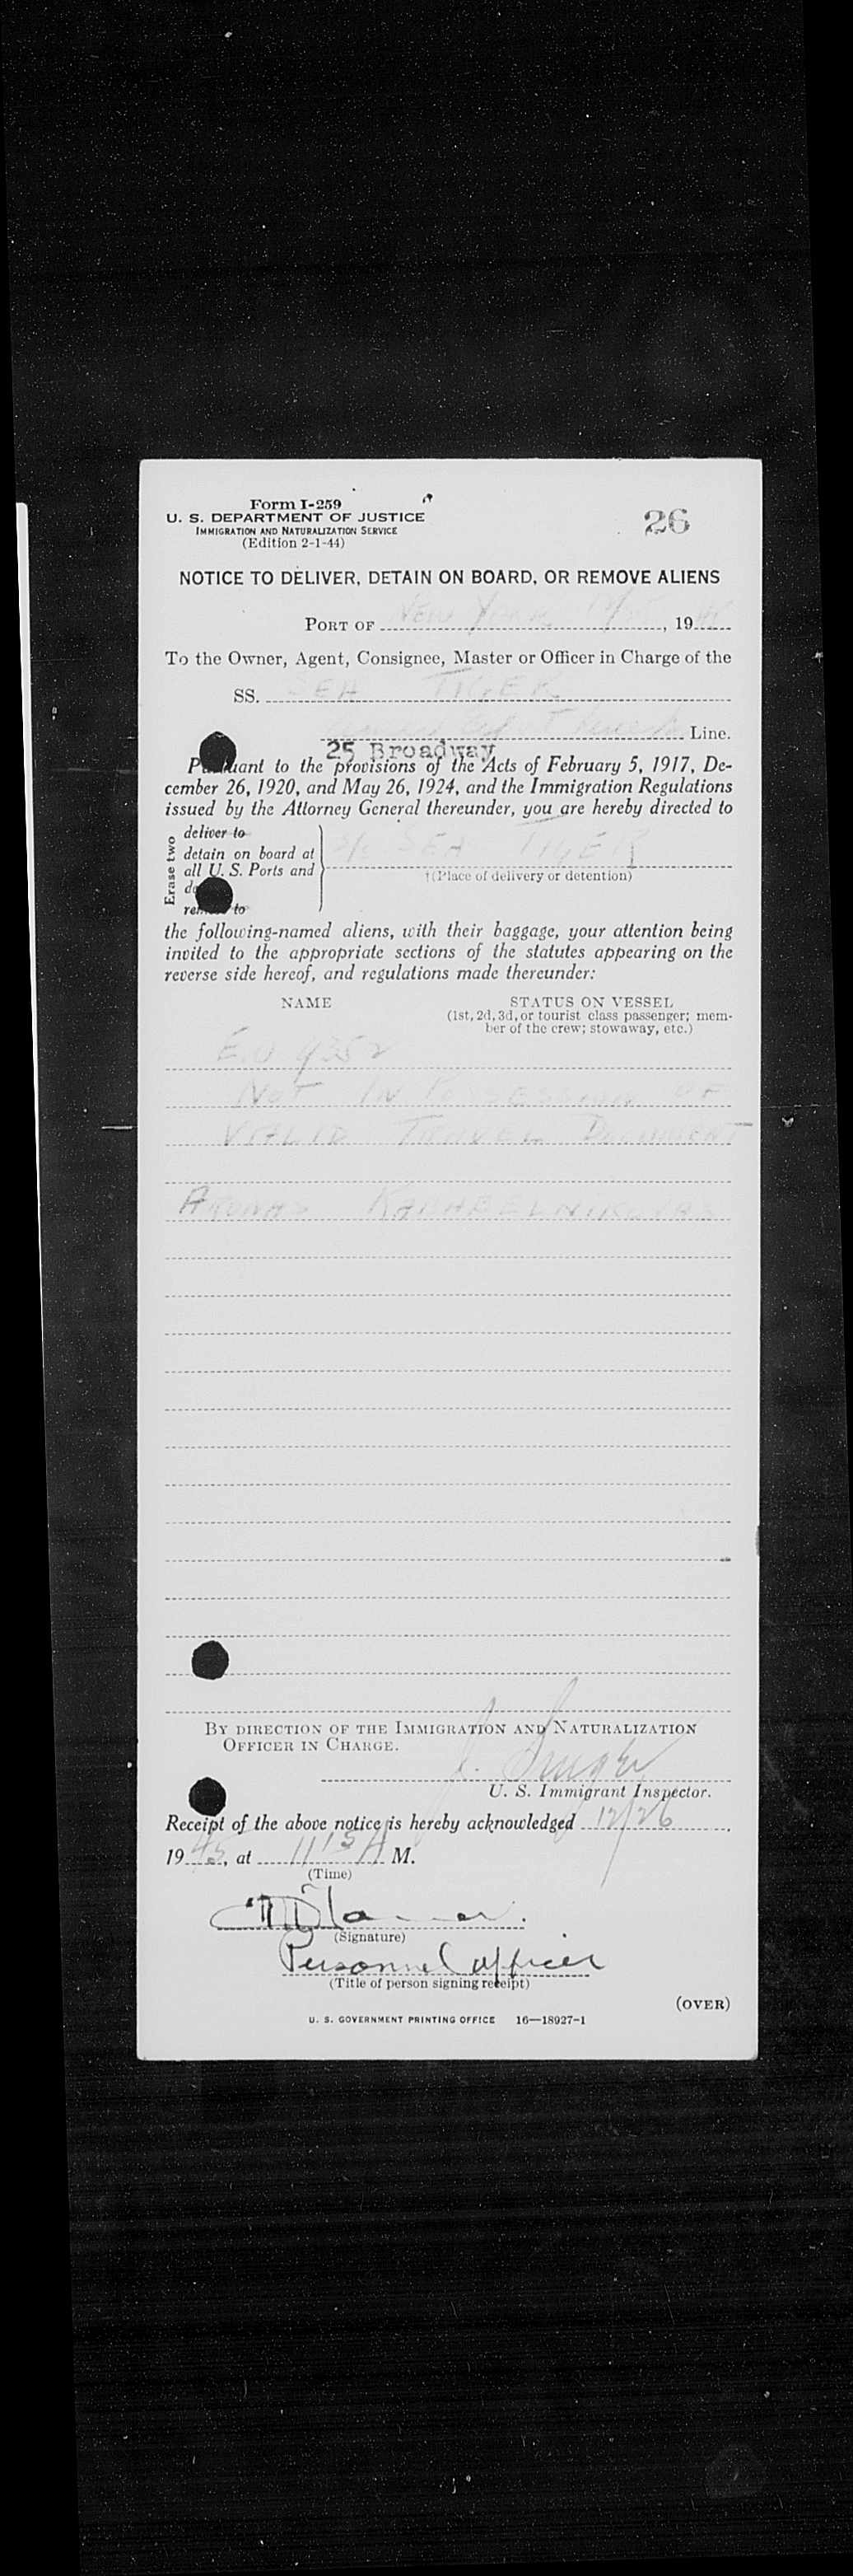 Form I-259
U. S. DEPARTMENT OF JUSTICE
IMMIGRATION AND NATURALIZATION SERVICE
(Edition 2-1-44)
26
NOTICE TO DELIVER, DETAIN ON BOARD, OR REMOVE ALIENS
PORT OF NEW YORK, 19
To the Owner, Agent, Consignee, Master or Officer in Charge of the
SS. SEA TIGER
Line.
25 Broadway
Pursuant to the provisions of the Acts of February 5, 1917, De-
cember 26, 1920, and May 26, 1924, and the Immigration Regulations
issued by the Attorney General thereunder, you are hereby directed to
Erase two
deliver to
detain on board at
all U. S. Ports and
S/S SEA TIGER
†(Place of delivery or detention)
remove to
the following-named aliens, with their baggage, your attention being
invited to the appropriate sections of the statutes appearing on the
reverse side hereof, and regulations made thereunder:
NAME
STATUS ON VESSEL
(1st, 2d, 3d, or tourist class passenger; mem-
ber of the crew; stowaway, etc.)
E.O 9352
NOT IN POSSESSION OF
VALID TRAVEL DOCUMENT
BY DIRECTION OF THE IMMIGRATION AND NATURALIZATION
OFFICER IN CHARGE.
U. S. Immigrant Inspector.
Receipt of the above notice is hereby acknowledged 12/26,
1945, at 11 15 A M.
(Time)
(Signature)
Personnel Officer
(Title of person signing receipt)
(OVER)
U. S. GOVERNMENT PRINTING OFFICE 16—18927-1